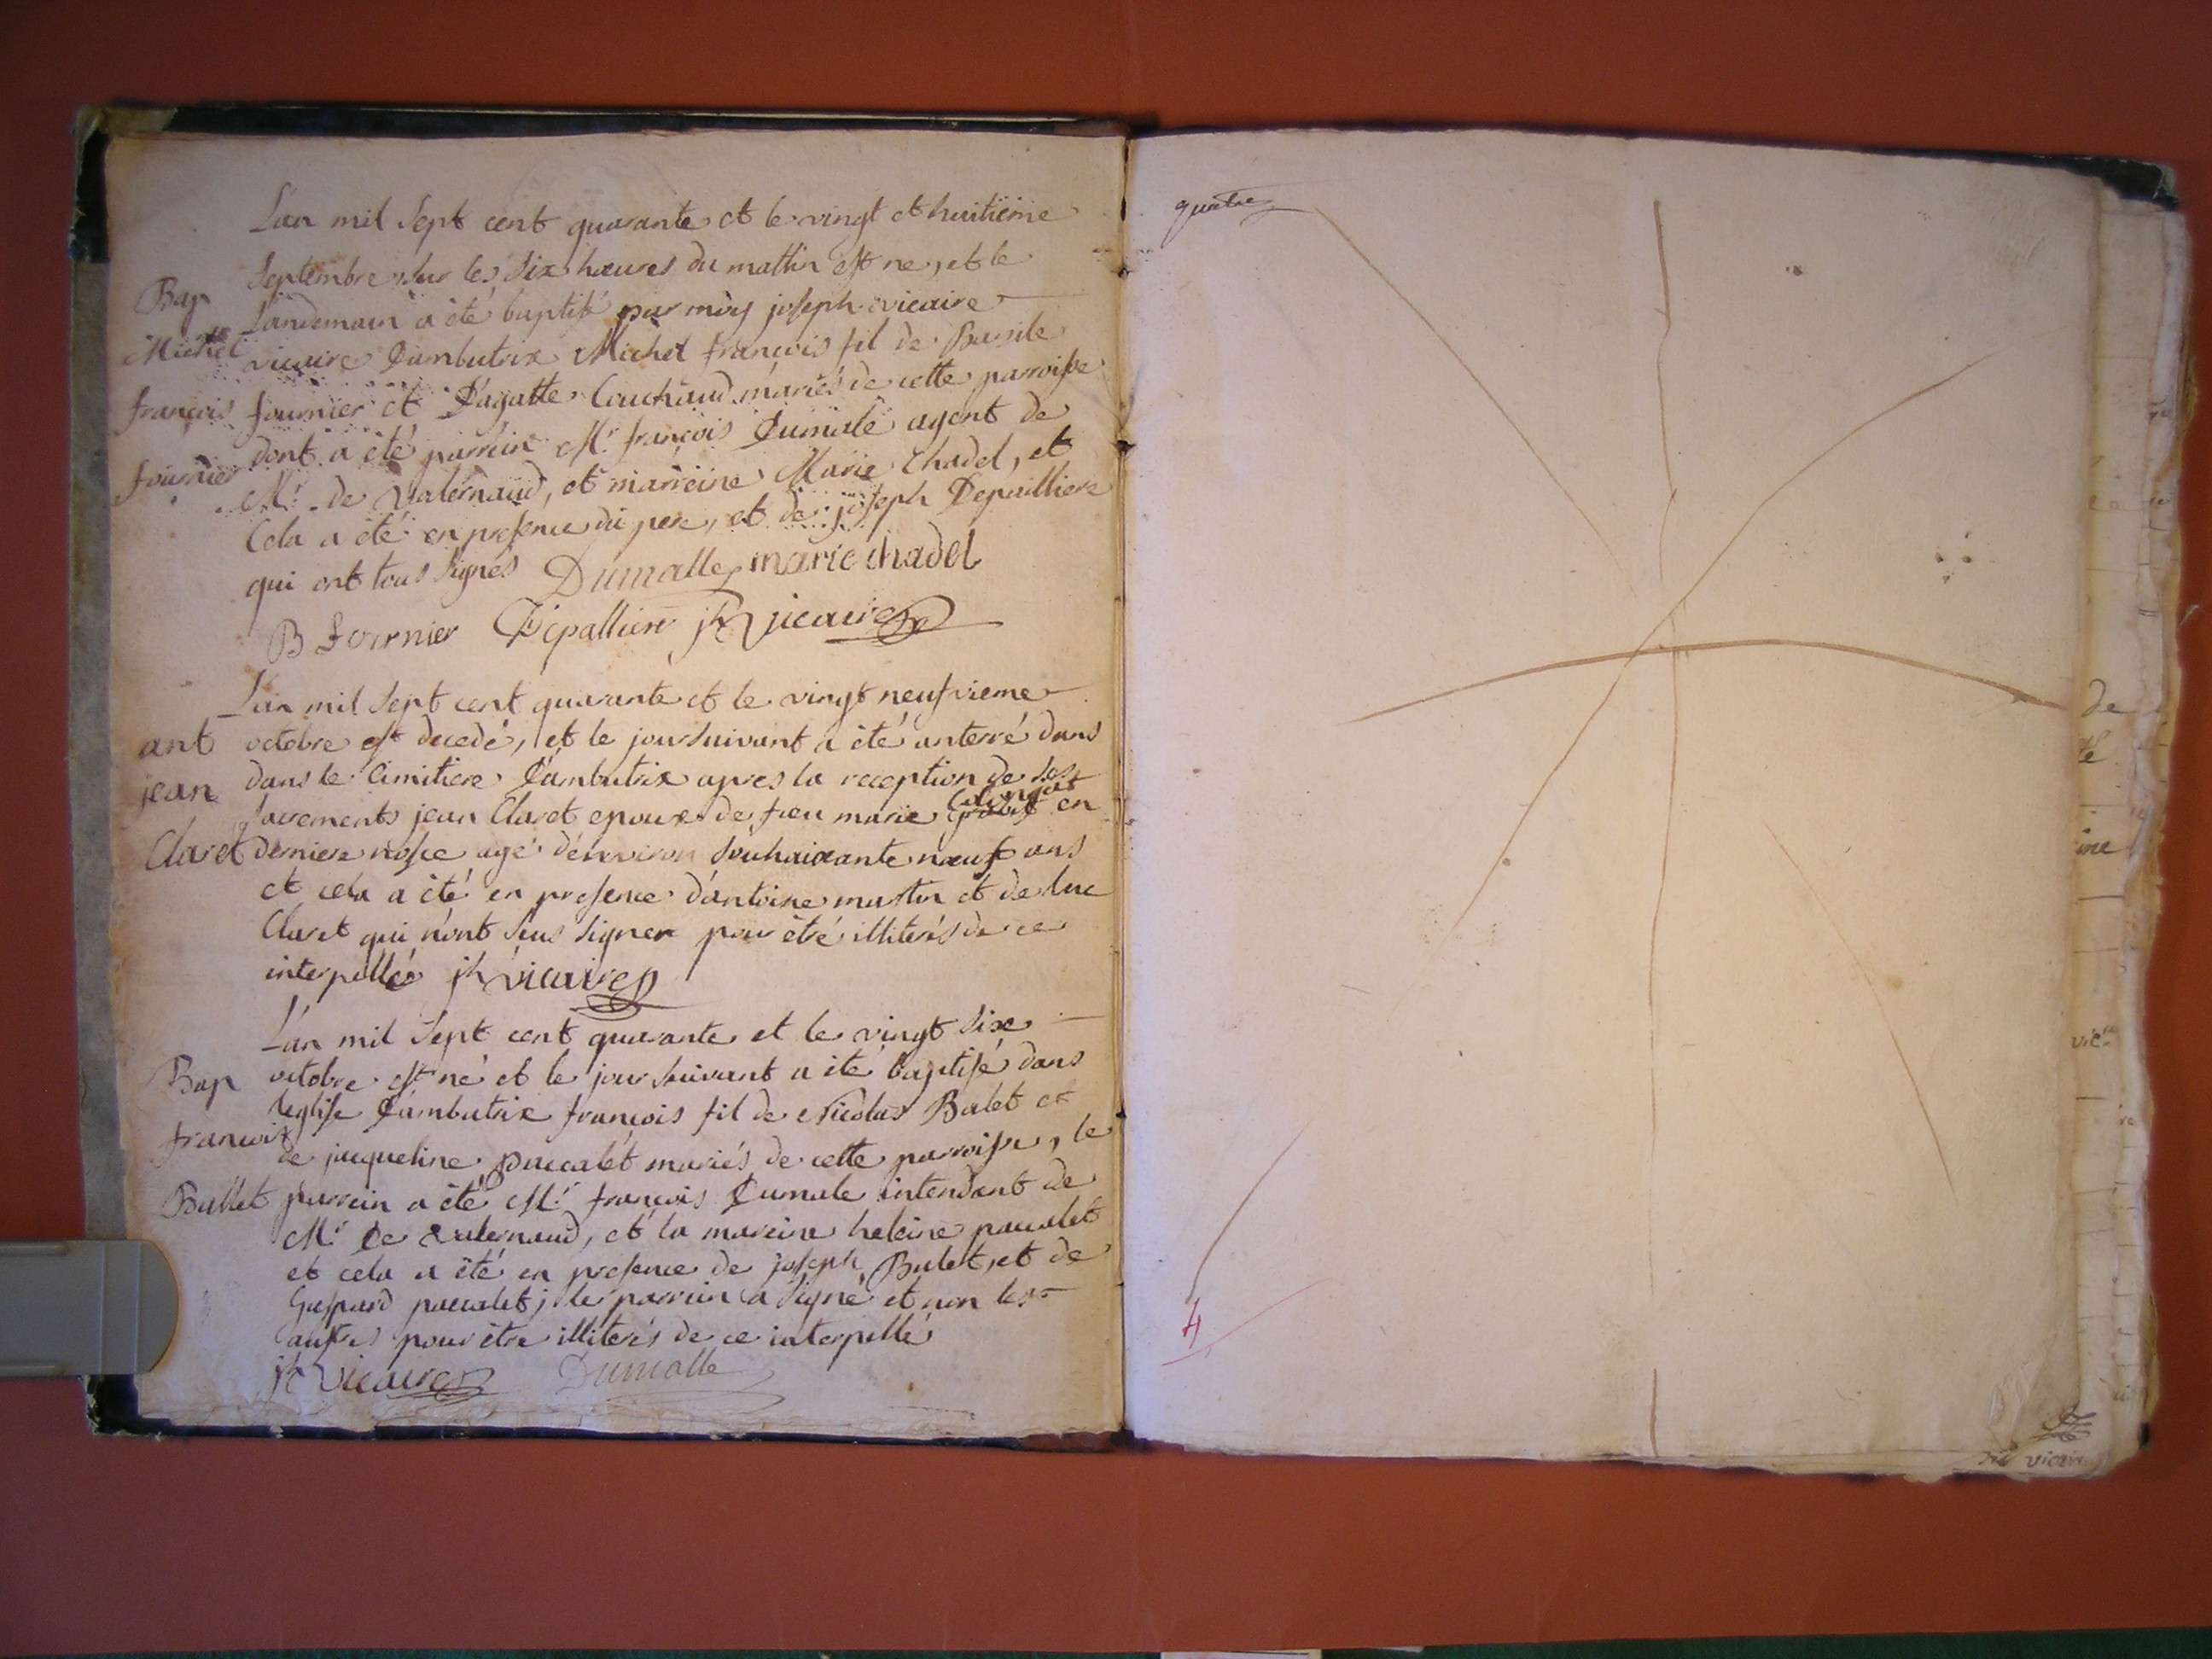 L'an mil sept cent quarante et le vingt et huitieme
septembre sur les six heures du mattin est ne, et le
Bap
landemain a été baptisé par moy joseph vicaire
Michel
vicaire d'ambutrix Michel françois fil de Basile
françois
fournier et d'agatte Couchaud mariés de cette parroisse
dont a été parrein Mr françois dumale agent de
fournier
Mr de Valernaud, et marreine Marie Chadel, et
Cela a été en presence du pere, et de joseph Depailliere
qui ont tous signés Dumalle marie chadel
B Fournier Depalliere jh Vicaire
L'an mil sept cent quarante et le vingt neufvieme
ant
octobre est decedé, et le jour suivant a été anterré dans
jean
dans le cimitiere d'ambutrix apres la reception de ses
sacrements jean Claret epoux de feu marie en
Claret
derniere nosce agé d'environ souhaixante noeuf ans
et cela a été en presence d'antoine martin et de luc
Claret qui n'ont seus signer pour étré illiterés de ce
interpellés jh vicaire
L'an mil sept cent quarante et le vingt six
Bap
octobre est né et le jour suivant a été baptisé dans
l'eglise d'ambutrix françois fil de Nicolas Balet et
francois
de jacqueline paccalet mariés de cette parroisse, le
Ballet
parrein a été Mr françois dumale intendant de
Mr de Valernaud, et la mareine heleine paccalet
et cela a été en presence de joseph Balet, et de
Gaspard paccalet; le parrein a signé et non les
autres pour être illiterés de ce interpellé
jh Vicaire Dumalle
quatre
4
de
vicaire